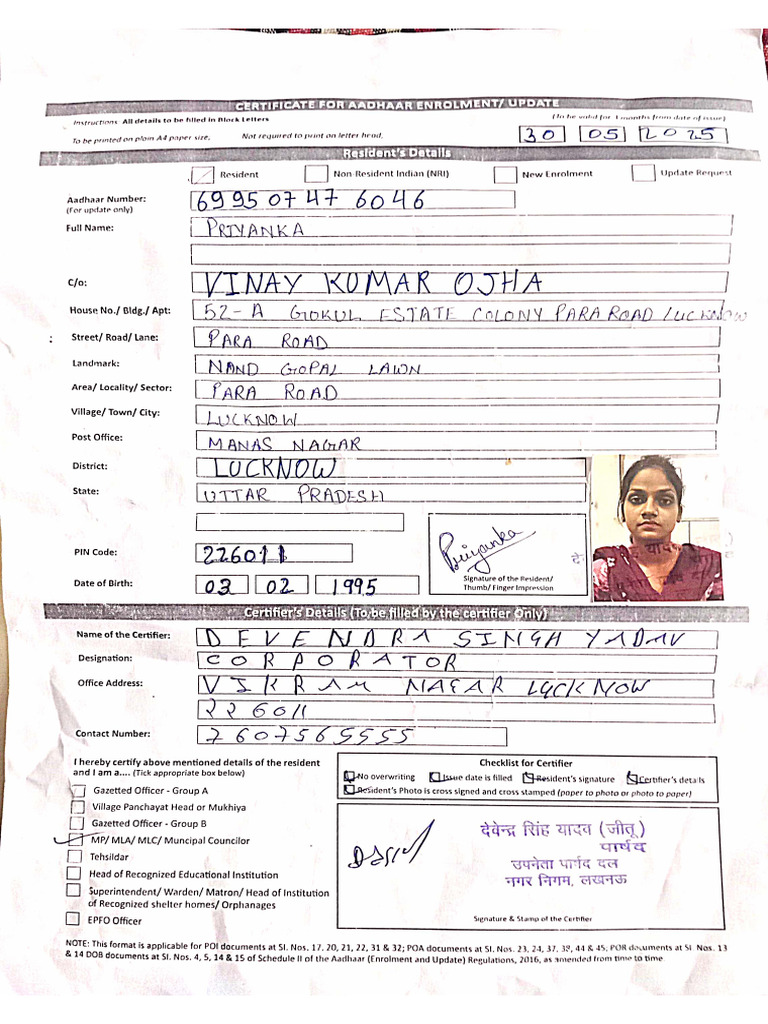 CERTIFICATE FOR AADHAAR ENROLMENT/ UPDATE
Instructions: All details to be filled in Block Letters
(To be valid for 3 months from date of issue)
To be printed on plain A4 paper size, Not required to print on letter head.
30 05 2025
Resident's Details
Resident Non-Resident Indian (NRI) New Enrolment Update Request
Aadhaar Number: 6995 0747 6046
(For update only)
Full Name: PRIYANKA
C/o: VINAY KUMAR OJHA
House No./ Bldg./ Apt: 52-A GOKUL ESTATE COLONY PARA ROAD LUCKNOW
Street/ Road/ Lane: PARA ROAD
Landmark: NAND GOPAL LAWN
Area/ Locality/ Sector: PARA ROAD
Village/ Town/ City: LUCKNOW
Post Office: MANAS NAGAR
District: LUCKNOW
State: UTTAR PRADESH
PIN Code: 226011
Priyanka
Signature of the Resident/
Thumb/ Finger Impression
Date of Birth: 03 02 1995
Certifier's Details (To be filled by the certifier Only)
Name of the Certifier: DEVENDRA SINGH YADAV
Designation: CORPORATOR
Office Address: VIKRAM NAGAR LUCKNOW
226011
Contact Number: 7607565555
I hereby certify above mentioned details of the resident
and I am a.... (Tick appropriate box below)
Gazetted Officer - Group A
Village Panchayat Head or Mukhiya
Gazetted Officer - Group B
MP/ MLA/ MLC/ Muncipal Councilor
Tehsildar
Head of Recognized Educational Institution
Superintendent/ Warden/ Matron/ Head of Institution
of Recognized shelter homes/ Orphanages
EPFO Officer
Checklist for Certifier
No overwriting Issue date is filled Resident's signature Certifier's details
Resident's Photo is cross signed and cross stamped (paper to photo or photo to paper)
देवेन्द्र सिंह यादव (जीतू)
पार्षद
उपनेता पार्षद दल
नगर निगम, लखनऊ
Signature & Stamp of the Certifier
NOTE: This format is applicable for POI documents at Sl. Nos. 17. 20, 21, 22, 31 & 32; POA documents at Sl. Nos. 23, 24, 37, 38, 44 & 45; POR documents at Sl. Nos. 13
& 14 DOB documents at Sl. Nos. 4, 5, 14 & 15 of Schedule II of the Aadhaar (Enrolment and Update) Regulations, 2016, as amended from time to time.